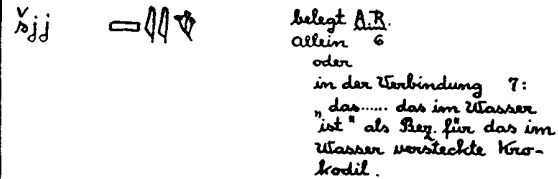 šjj 𓈙𓇋𓇋 belegt A.R.
allein 6
oder
in der Verbindung 7:
„das...... das im Wasser
ist" als Bez. für das im
Wasser versteckte Kro-
kodil.